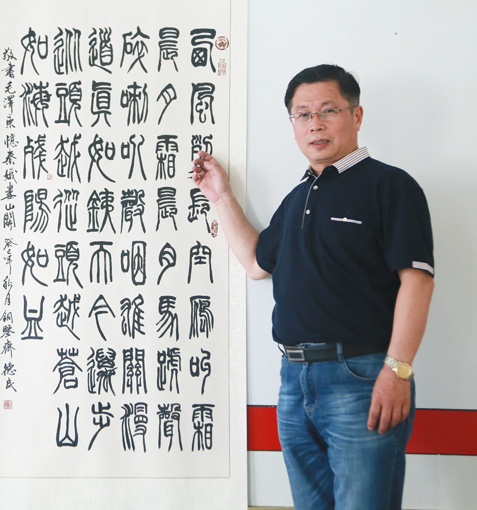 西風烈長空雁叫霜
晨月霜晨月馬蹄聲
碎喇叭聲咽雄關漫
道真如鐵而今邁步
從頭越從頭越蒼山
如海殘陽如血
敬書毛澤東憶秦娥婁山關 癸巳年秋月 德民